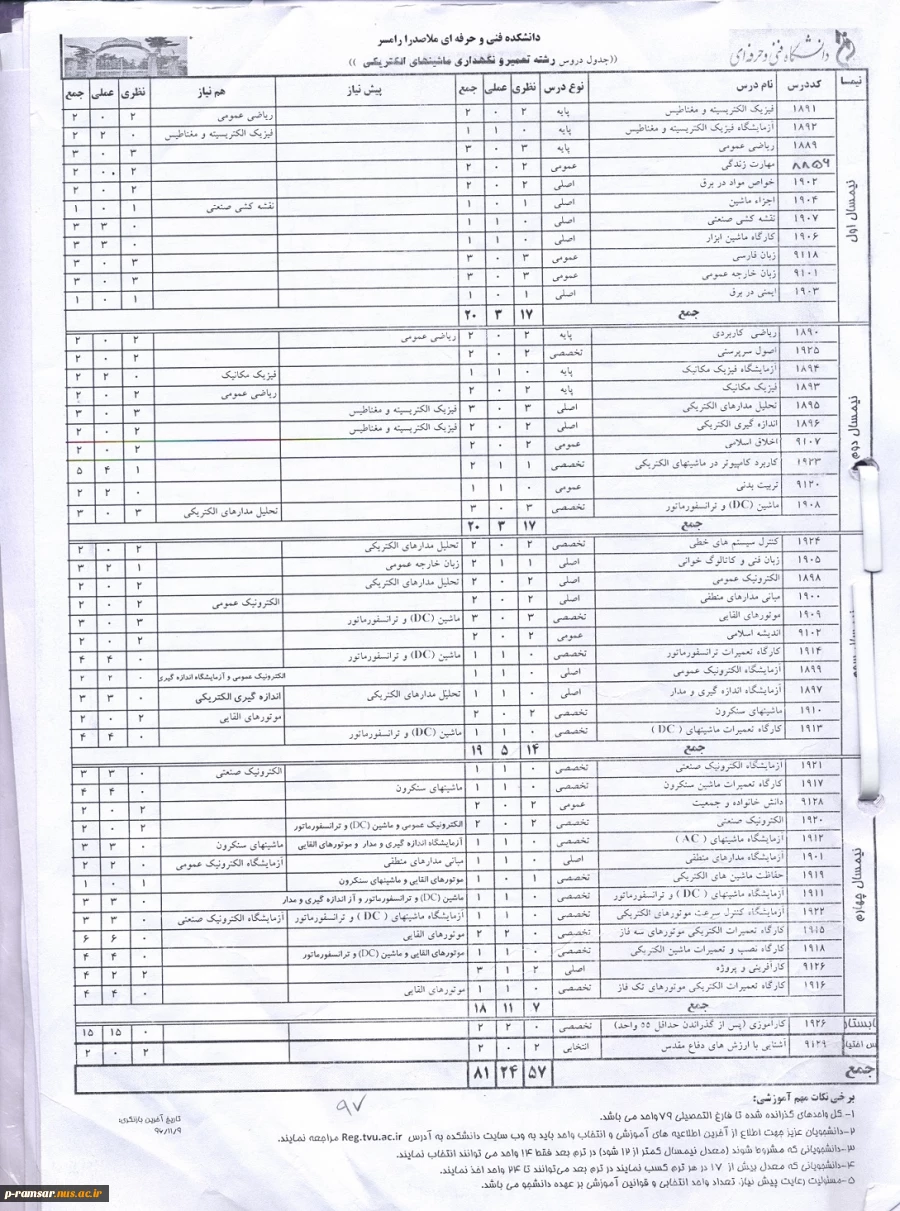 دانشگاه فنی و حرفه ای
دانشکده فنی و حرفه ای ملاصدرا رامسر
((جدول دروس رشته تعمیر و نگهداری ماشینهای الکتریکی ))
نیمسا کددرس نام درس نوع درس نظری عملی جمع پیش نیاز هم نیاز نظری عملی جمع
نیمسال اول
۱۸۹۱ فیزیک الکتریسیته و مغناطیس پایه ۲ ۰ ۲ ریاضی عمومی ۲ ۰ ۲
۱۸۹۲ آزمایشگاه فیزیک الکتریسیته و مغناطیس پایه ۰ ۱ ۱ فیزیک الکتریسیته و مغناطیس ۰ ۲ ۲
۱۸۸۹ ریاضی عمومی پایه ۳ ۰ ۳ ۳ ۰ ۳
مهارت زندگی عمومی ۲ ۰ ۲ ۲ ۰ ۲
۱۹۰۲ خواص مواد در برق اصلی ۲ ۰ ۲ ۲ ۰ ۲
۱۹۰۴ اجزاء ماشین اصلی ۱ ۰ ۱ نقشه کشی صنعتی ۱ ۰ ۱
۱۹۰۷ نقشه کشی صنعتی اصلی ۰ ۱ ۱ ۰ ۳ ۳
۱۹۰۶ کارگاه ماشین ابزار اصلی ۰ ۱ ۱ ۰ ۳ ۳
۹۱۱۸ زبان فارسی عمومی ۳ ۰ ۳ ۳ ۰ ۳
۹۱۰۱ زبان خارجه عمومی عمومی ۳ ۰ ۳ ۳ ۰ ۳
۱۹۰۳ ایمنی در برق اصلی ۱ ۰ ۱ ۱ ۰ ۱
جمع ۱۷ ۳ ۲۰
نیمسال دوم
۱۸۹۰ ریاضی کاربردی پایه ۲ ۰ ۲ ریاضی عمومی ۲ ۰ ۲
۱۹۲۵ اصول سرپرستی تخصصی ۲ ۰ ۲ ۲ ۰ ۲
۱۸۹۴ آزمایشگاه فیزیک مکانیک پایه ۰ ۱ ۱ فیزیک مکانیک ۰ ۲ ۲
۱۸۹۳ فیزیک مکانیک پایه ۲ ۰ ۲ ریاضی عمومی ۲ ۰ ۲
۱۸۹۵ تحلیل مدارهای الکتریکی اصلی ۳ ۰ ۳ فیزیک الکتریسیته و مغناطیس ۳ ۰ ۳
۱۸۹۶ اندازه گیری الکتریکی اصلی ۲ ۰ ۲ فیزیک الکتریسیته و مغناطیس ۲ ۰ ۲
۹۱۰۷ اخلاق اسلامی عمومی ۲ ۰ ۲ ۲ ۰ ۲
۱۹۲۳ کاربرد کامپیوتر در ماشینهای الکتریکی تخصصی ۱ ۱ ۲ ۱ ۴ ۵
۹۱۲۰ تربیت بدنی عمومی ۰ ۱ ۱ ۰ ۲ ۲
۱۹۰۸ ماشین (DC) و ترانسفورماتور تخصصی ۳ ۰ ۳ تحلیل مدارهای الکتریکی ۳ ۰ ۳
جمع ۱۷ ۳ ۲۰
۱۹۲۴ کنترل سیستم های خطی تخصصی ۲ ۰ ۲ تحلیل مدارهای الکتریکی ۲ ۰ ۲
۱۹۰۵ زبان فنی و کاتالوگ خوانی اصلی ۱ ۱ ۲ زبان خارجه عمومی ۱ ۲ ۳
۱۸۹۸ الکترونیک عمومی اصلی ۲ ۰ ۲ تحلیل مدارهای الکتریکی ۲ ۰ ۲
۱۹۰۰ مبانی مدارهای منطقی اصلی ۲ ۰ ۲ الکترونیک عمومی ۲ ۰ ۲
۱۹۰۹ موتورهای القایی تخصصی ۳ ۰ ۳ ماشین (DC) و ترانسفورماتور ۳ ۰ ۳
۹۱۰۲ اندیشه اسلامی عمومی ۲ ۰ ۲ ۲ ۰ ۲
۱۹۱۴ کارگاه تعمیرات ترانسفورماتور تخصصی ۰ ۱ ۱ ماشین (DC) و ترانسفورماتور ۰ ۴ ۴
۱۸۹۹ آزمایشگاه الکترونیک عمومی اصلی ۰ ۱ ۱ الکترونیک عمومی و آزمایشگاه اندازه گیری ۰ ۲ ۲
۱۸۹۷ آزمایشگاه اندازه گیری و مدار اصلی ۰ ۱ ۱ تحلیل مدارهای الکتریکی اندازه گیری الکتریکی ۰ ۳ ۳
۱۹۱۰ ماشینهای سنکرون تخصصی ۲ ۰ ۲ موتورهای القایی ۲ ۰ ۲
۱۹۱۳ کارگاه تعمیرات ماشینهای ( DC ) تخصصی ۰ ۱ ۱ ماشین (DC) و ترانسفورماتور ۰ ۴ ۴
جمع ۱۴ ۵ ۱۹
نیمسال چهارم
۱۹۲۱ آزمایشگاه الکترونیک صنعتی تخصصی ۰ ۱ ۱ الکترونیک صنعتی ۰ ۳ ۳
۱۹۱۷ کارگاه تعمیرات ماشین سنکرون تخصصی ۰ ۱ ۱ ماشینهای سنکرون ۰ ۴ ۴
۹۱۲۸ دانش خانواده و جمعیت عمومی ۲ ۰ ۲ ۲ ۰ ۲
۱۹۲۰ الکترونیک صنعتی تخصصی ۲ ۰ ۲ الکترونیک عمومی و ماشین (DC) و ترانسفورماتور ۲ ۰ ۲
۱۹۱۲ آزمایشگاه ماشینهای ( AC ) تخصصی ۰ ۱ ۱ آزمایشگاه اندازه گیری و مدار و موتورهای القایی ماشینهای سنکرون ۰ ۳ ۳
۱۹۰۱ آزمایشگاه مدارهای منطقی اصلی ۰ ۱ ۱ مبانی مدارهای منطقی آزمایشگاه الکترونیک عمومی ۰ ۲ ۲
۱۹۱۹ حفاظت ماشین های الکتریکی تخصصی ۱ ۰ ۱ موتورهای القایی و ماشینهای سنکرون ۱ ۰ ۱
۱۹۱۱ آزمایشگاه ماشینهای ( DC ) و ترانسفورماتور تخصصی ۰ ۱ ۱ ماشین (DC) و ترانسفورماتور و آز اندازه گیری و مدار ۰ ۳ ۳
۱۹۲۲ آزمایشگاه کنترل سرعت موتورهای الکتریکی تخصصی ۰ ۱ ۱ آزمایشگاه ماشینهای ( DC ) و ترانسفورماتور آزمایشگاه الکترونیک صنعتی ۰ ۳ ۳
۱۹۱۵ کارگاه تعمیرات الکتریکی موتورهای سه فاز تخصصی ۰ ۲ ۲ موتورهای القایی ۰ ۶ ۶
۱۹۱۸ کارگاه نصب و تعمیرات ماشین الکتریکی تخصصی ۰ ۱ ۱ موتورهای القایی و ماشین (DC) و ترانسفورماتور ۰ ۴ ۴
۹۱۲۶ کارآفرینی و پروژه اصلی ۲ ۱ ۳ ۲ ۲ ۴
۱۹۱۶ کارگاه تعمیرات الکتریکی موتورهای تک فاز تخصصی ۰ ۱ ۱ موتورهای القایی ۰ ۴ ۴
جمع ۷ ۱۱ ۱۸
تابستان ۱۹۲۶ کارآموزی (پس از گذراندن حداقل ۵۵ واحد) تخصصی ۰ ۲ ۲ ۰ ۱۵ ۱۵
۹۱۲۹ آشنایی با ارزش های دفاع مقدس انتخابی ۲ ۰ ۲ ۲ ۰ ۲
جمع ۵۷ ۲۴ ۸۱
برخی نکات مهم آموزشی:
۹۷
۱-کل واحدهای گذرانده شده تا فارغ التحصیلی ۷۹ واحد می باشد.
تاریخ آخرین بازنگری:
۹۶/۱۱/۹
۲-دانشجویان عزیز جهت اطلاع از آخرین اطلاعیه های آموزشی و انتخاب واحد باید به وب سایت دانشکده به آدرس Reg.tvu.ac.ir مراجعه نمایند.
۳-دانشجویانی که مشروط شوند (معدل نیمسال کمتر از ۱۲ شود) در ترم بعد فقط ۱۴ واحد می توانند انتخاب نمایند.
۴-دانشجویانی که معدل بیش از ۱۷ در هر ترم کسب نمایند در ترم بعد می‌توانند تا ۲۴ واحد اخذ نمایند.
۵-مسئولیت رعایت پیش نیاز، تعداد واحد انتخابی و قوانین آموزشی بر عهده دانشجو می باشد.
p-ramsar.nus.ac.ir